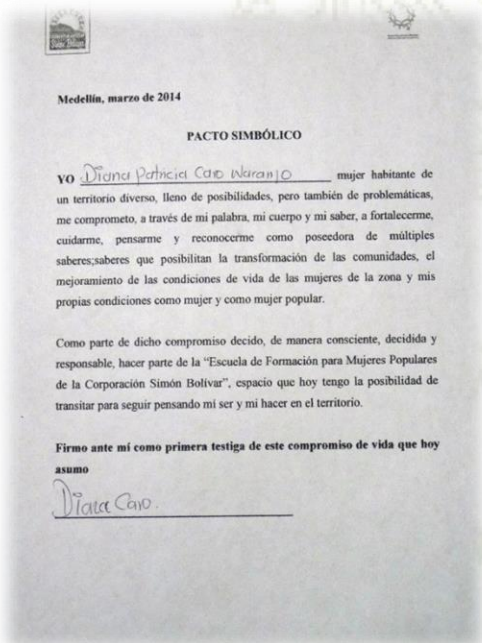 Medellín, marzo de 2014
PACTO SIMBÓLICO
YO Diana Patricia Caro Naranjo mujer habitante de
un territorio diverso, lleno de posibilidades, pero también de problemáticas,
me comprometo, a través de mi palabra, mi cuerpo y mi saber, a fortalecerme,
cuidarme, pensarme y reconocerme como poseedora de múltiples
saberes;saberes que posibilitan la transformación de las comunidades, el
mejoramiento de las condiciones de vida de las mujeres de la zona y mis
propias condiciones como mujer y como mujer popular.
Como parte de dicho compromiso decido, de manera consciente, decidida y
responsable, hacer parte de la “Escuela de Formación para Mujeres Populares
de la Corporación Simón Bolívar”, espacio que hoy tengo la posibilidad de
transitar para seguir pensando mi ser y mi hacer en el territorio.
Firmo ante mí como primera testiga de este compromiso de vida que hoy
asumo
Diana Caro.